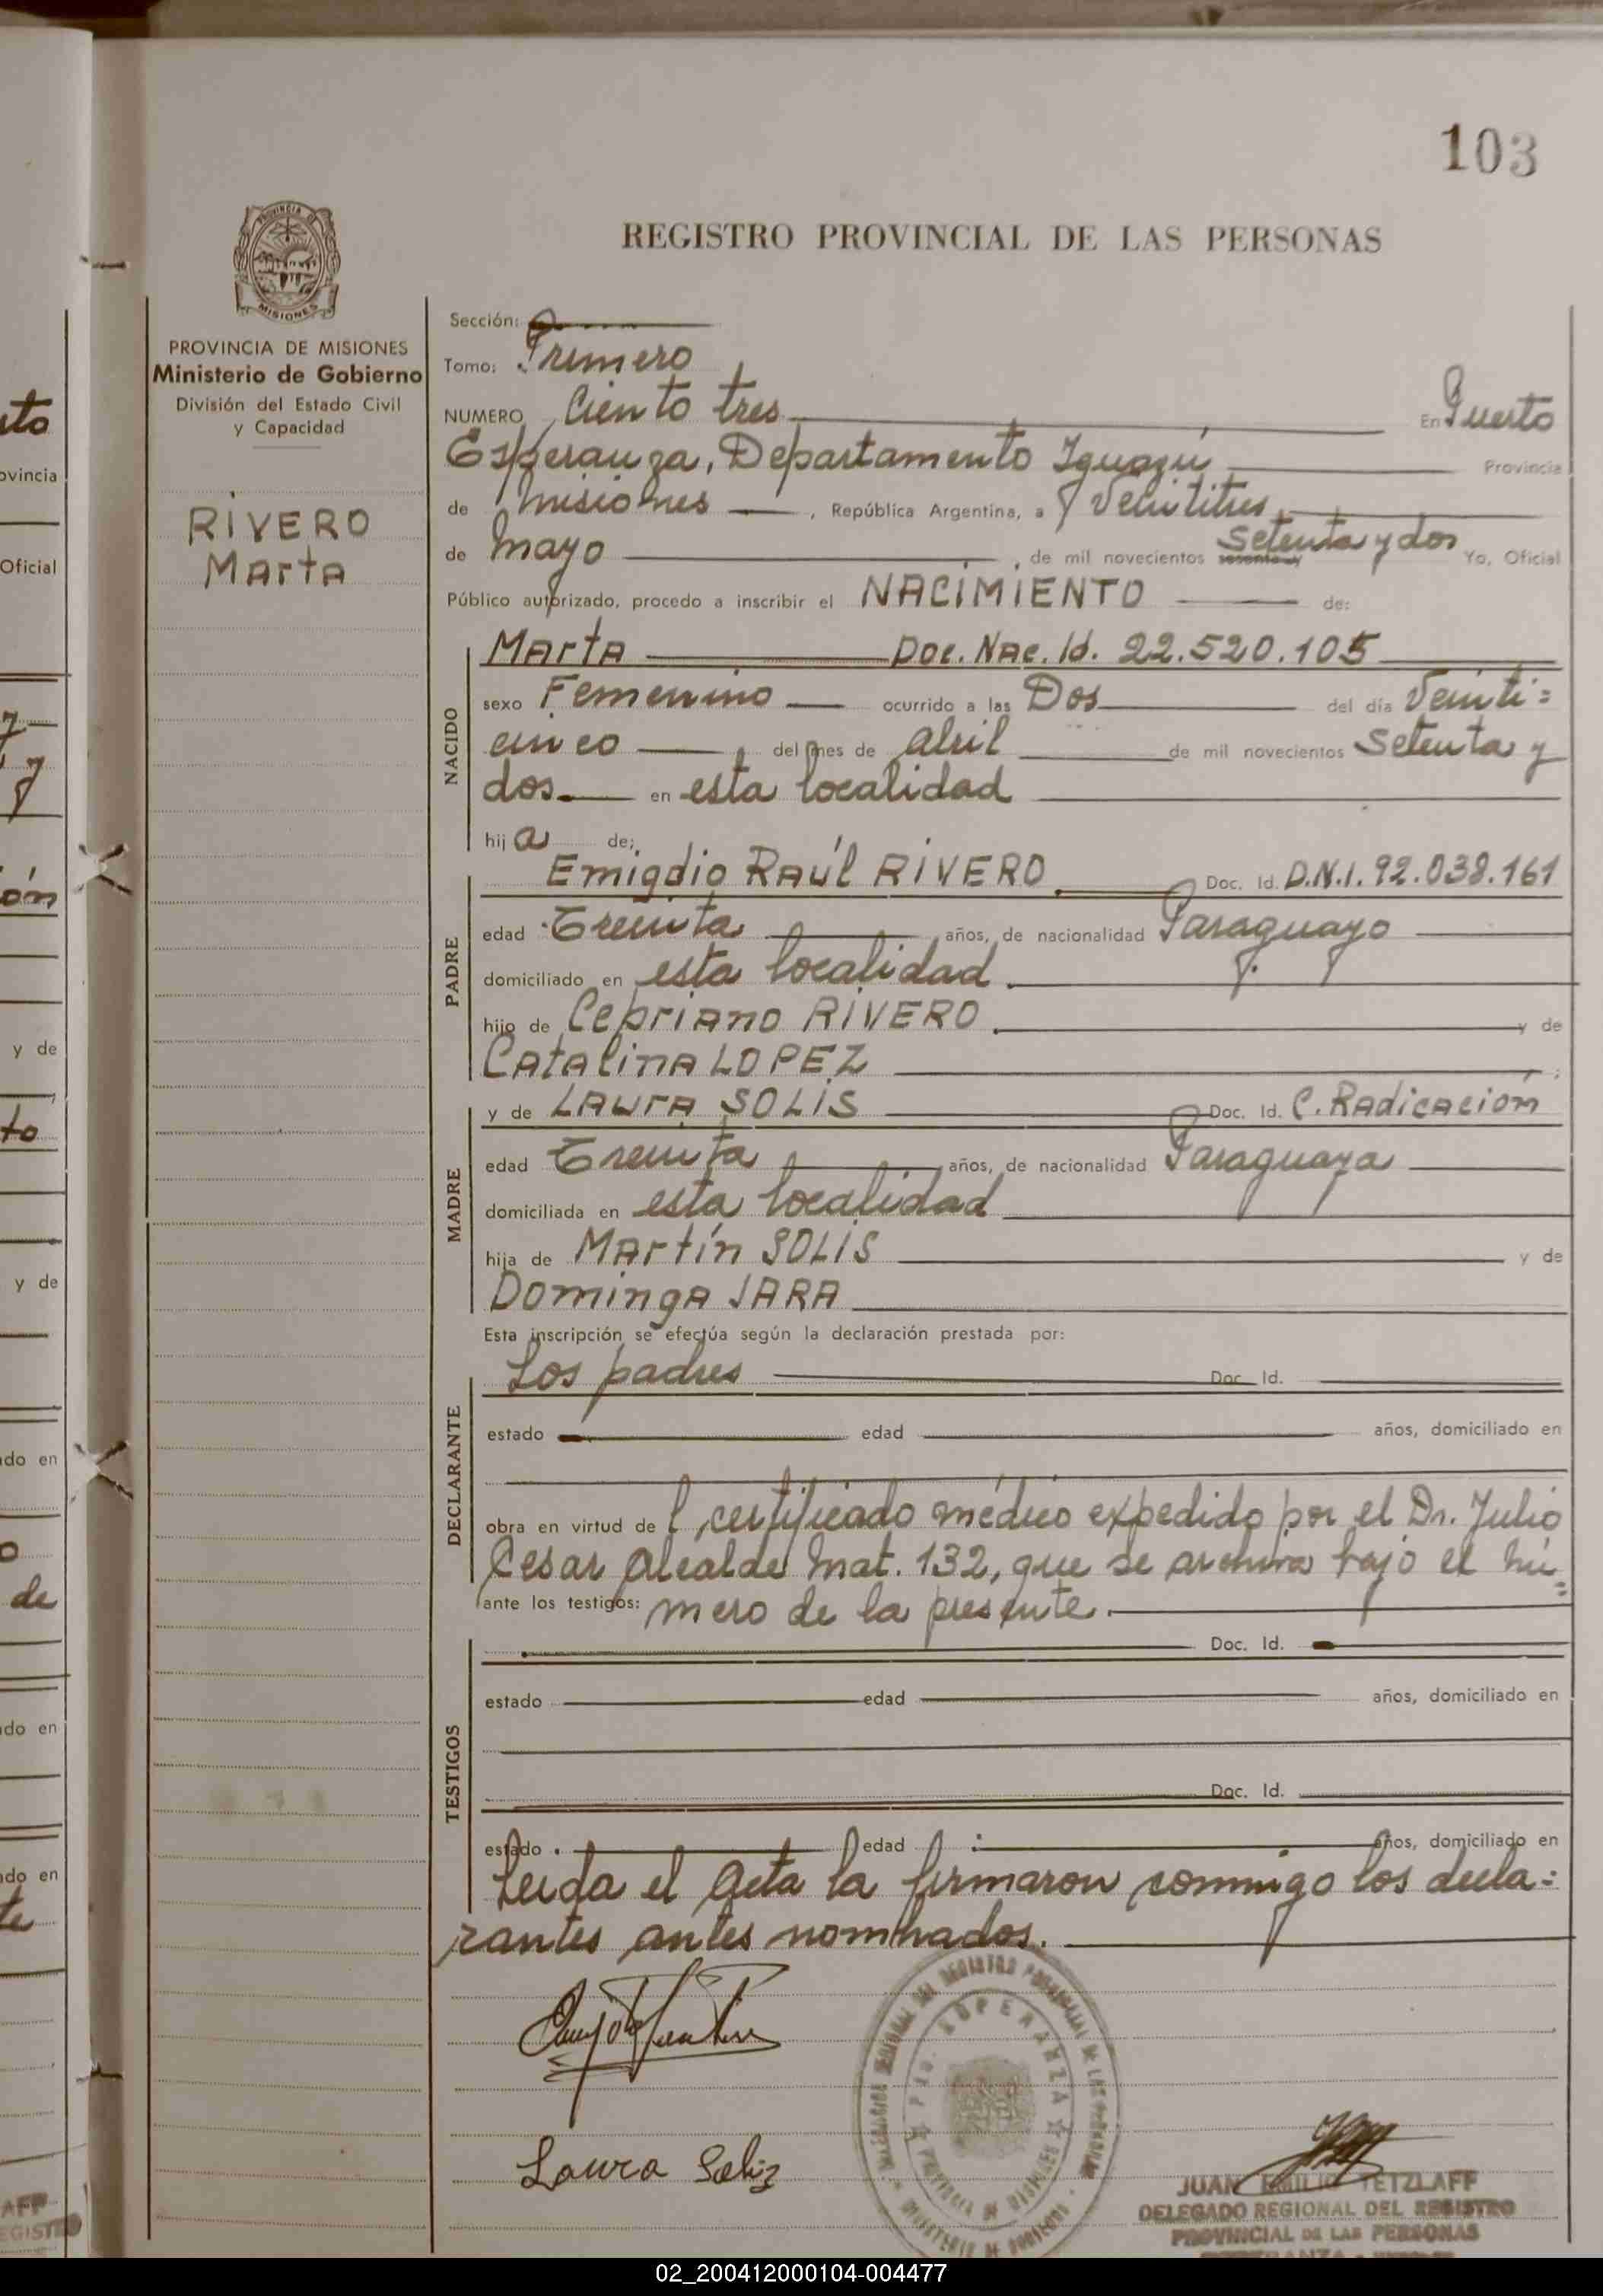 103
REGISTRO PROVINCIAL DE LAS PERSONAS
PROVINCIA DE MISIONES
Ministerio de Gobierno
División del Estado Civil
y Capacidad
RIVERO
Marta
Sección:
Tomo: Primero
NUMERO Ciento tres En Puerto
Esperanza, Departamento Iguazú Provincia
de Misiones, República Argentina, a Veintitres
de Mayo, de mil novecientos sesenta y Setenta y dos Yo, Oficial
Público autorizado, procedo a inscribir el NACIMIENTO de:
NACIDO
Marta Doc. Nac. Id. 22.520.105
sexo Femenino ocurrido a las Dos del día Veinti=
cinco del mes de abril de mil novecientos Setenta y
dos en esta localidad
hija de;
PADRE
Emigdio Raúl RIVERO Doc. Id. D.N.I. 92.038.161
edad Treinta años, de nacionalidad Paraguayo
domiciliado en esta localidad
hijo de Cepriano RIVERO y de
Catalina LOPEZ ;
MADRE
y de Laura SOLIS Doc. Id. C. Radicación
edad Treinta años, de nacionalidad Paraguaya
domiciliada en esta localidad
hija de Martín SOLIS y de
Dominga JARA
Esta inscripción se efectúa según la declaración prestada por:
DECLARANTE
Los padres Doc. Id.
estado edad años, domiciliado en
obra en virtud del certificado médico expedido por el Dr. Julio
Cesar Alcalde Mat. 132, que se archiva bajo el nú=
ante los testigos: mero de la presente.
TESTIGOS
Doc. Id.
estado edad años, domiciliado en
Doc. Id.
estado edad años, domiciliado en
Leida el Acta la firmaron conmigo los decla=
rantes antes nombrados.
Laura Soliz
JUAN EMILIO TETZLAFF
DELEGADO REGIONAL DEL REGISTRO
PROVINCIAL DE LAS PERSONAS
02_200412000104-004477